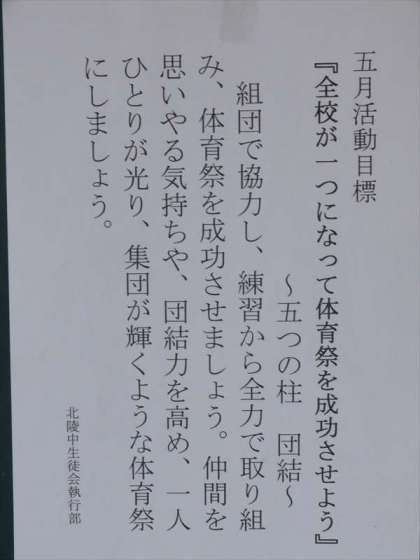 五月活動目標
『全校が一つになって体育祭を成功させよう』
～五つの柱　団結～
組団で協力し、練習から全力で取り組
み、体育祭を成功させましょう。仲間を
思いやる気持ちや、団結力を高め、一人
ひとりが光り、集団が輝くような体育祭
にしましょう。
北陵中生徒会執行部